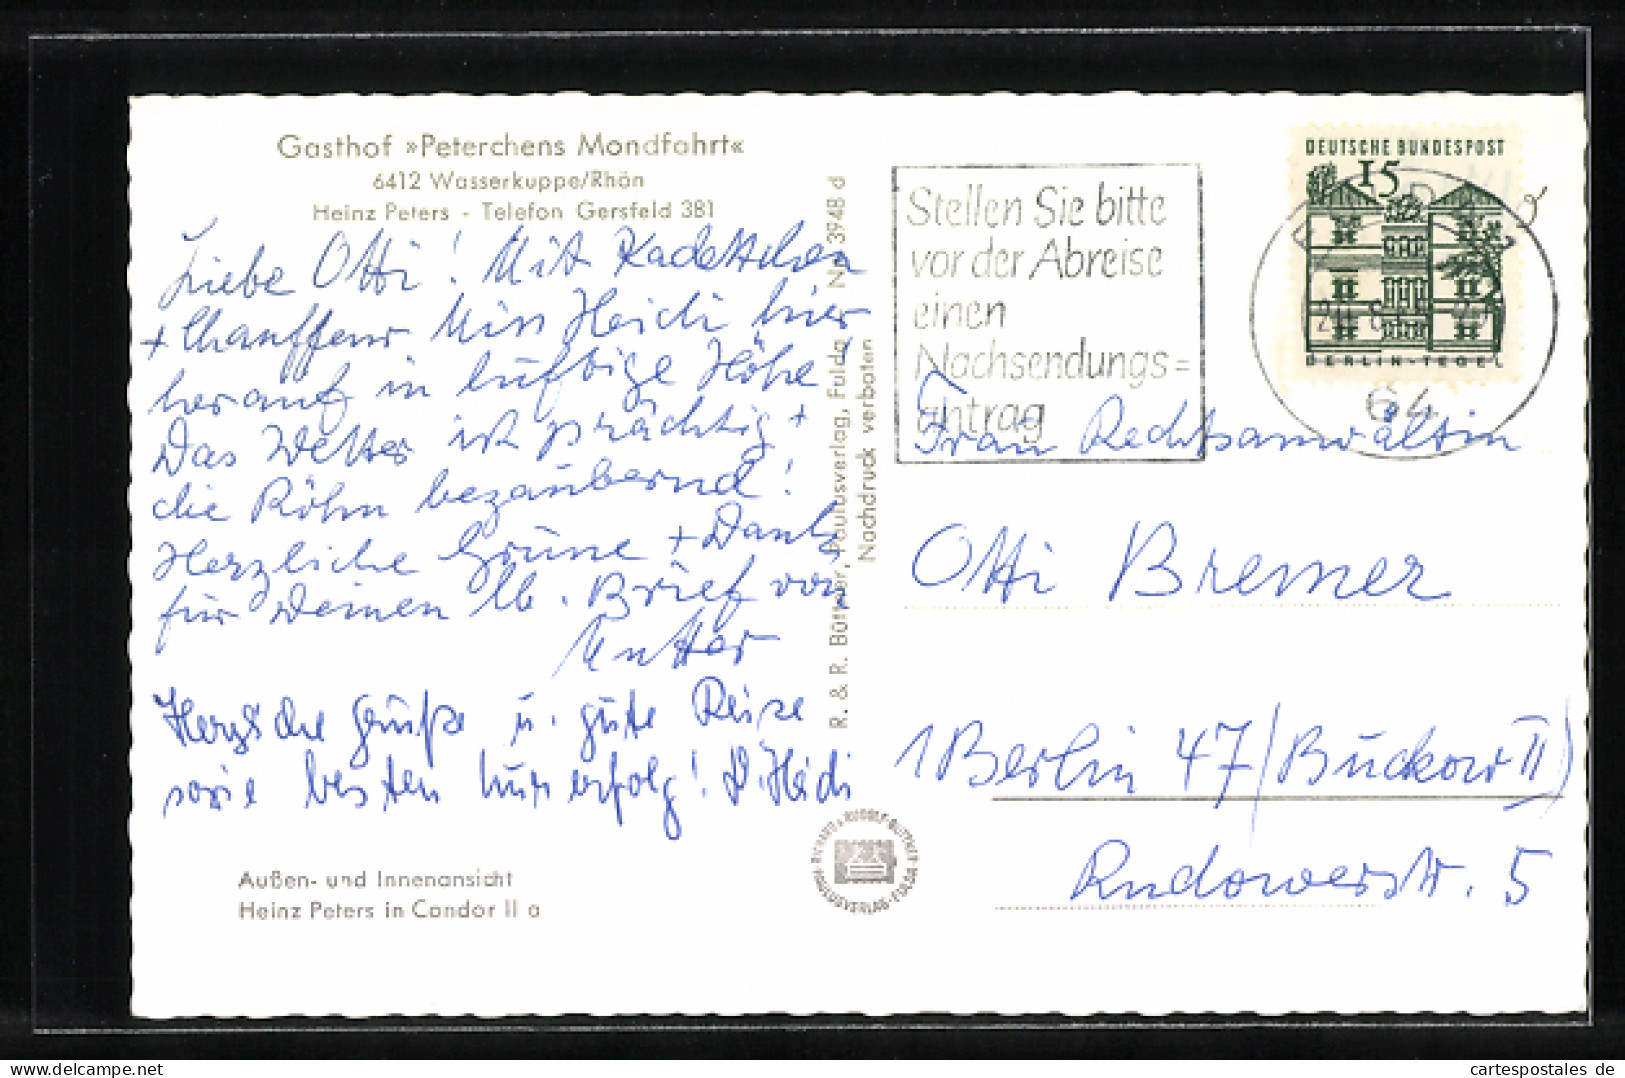 Gasthof »Peterchens Mondfahrt«
6412 Wasserkuppe/Rhön
Heinz Peters - Telefon Gersfeld 381
Liebe Otti! Mit Kadettchen
+ Chauffeur Miss Heidi hier
herauf in luftige Höhe!
Das Wetter ist prächtig +
die Röhn bezaubernd!
Herzliche Grüne + Dank
für Deinen lb. Brief von
Mutter
Herzliche Grüße u. gute Reise
sowie besten Kurerfolg! D. Heidi
Außen- und Innenansicht
Heinz Peters in Condor II a
R. & R. Büttner, Paulusverlag, Fulda Nr. 3948 d
Nachdruck verboten
RICHARD & RUDOLF BÜTTNER
PAULUSVERLAG-FULDA
Stellen Sie bitte
vor der Abreise
einen
Nachsendungs=
antrag
DEUTSCHE BUNDESPOST
15
BERLIN-TEGEL
64
Frau Rechtsanwältin
Otti Bremer
1 Berlin 47/Buckow II)
Rudowerstr. 5
www.cartespostales.de